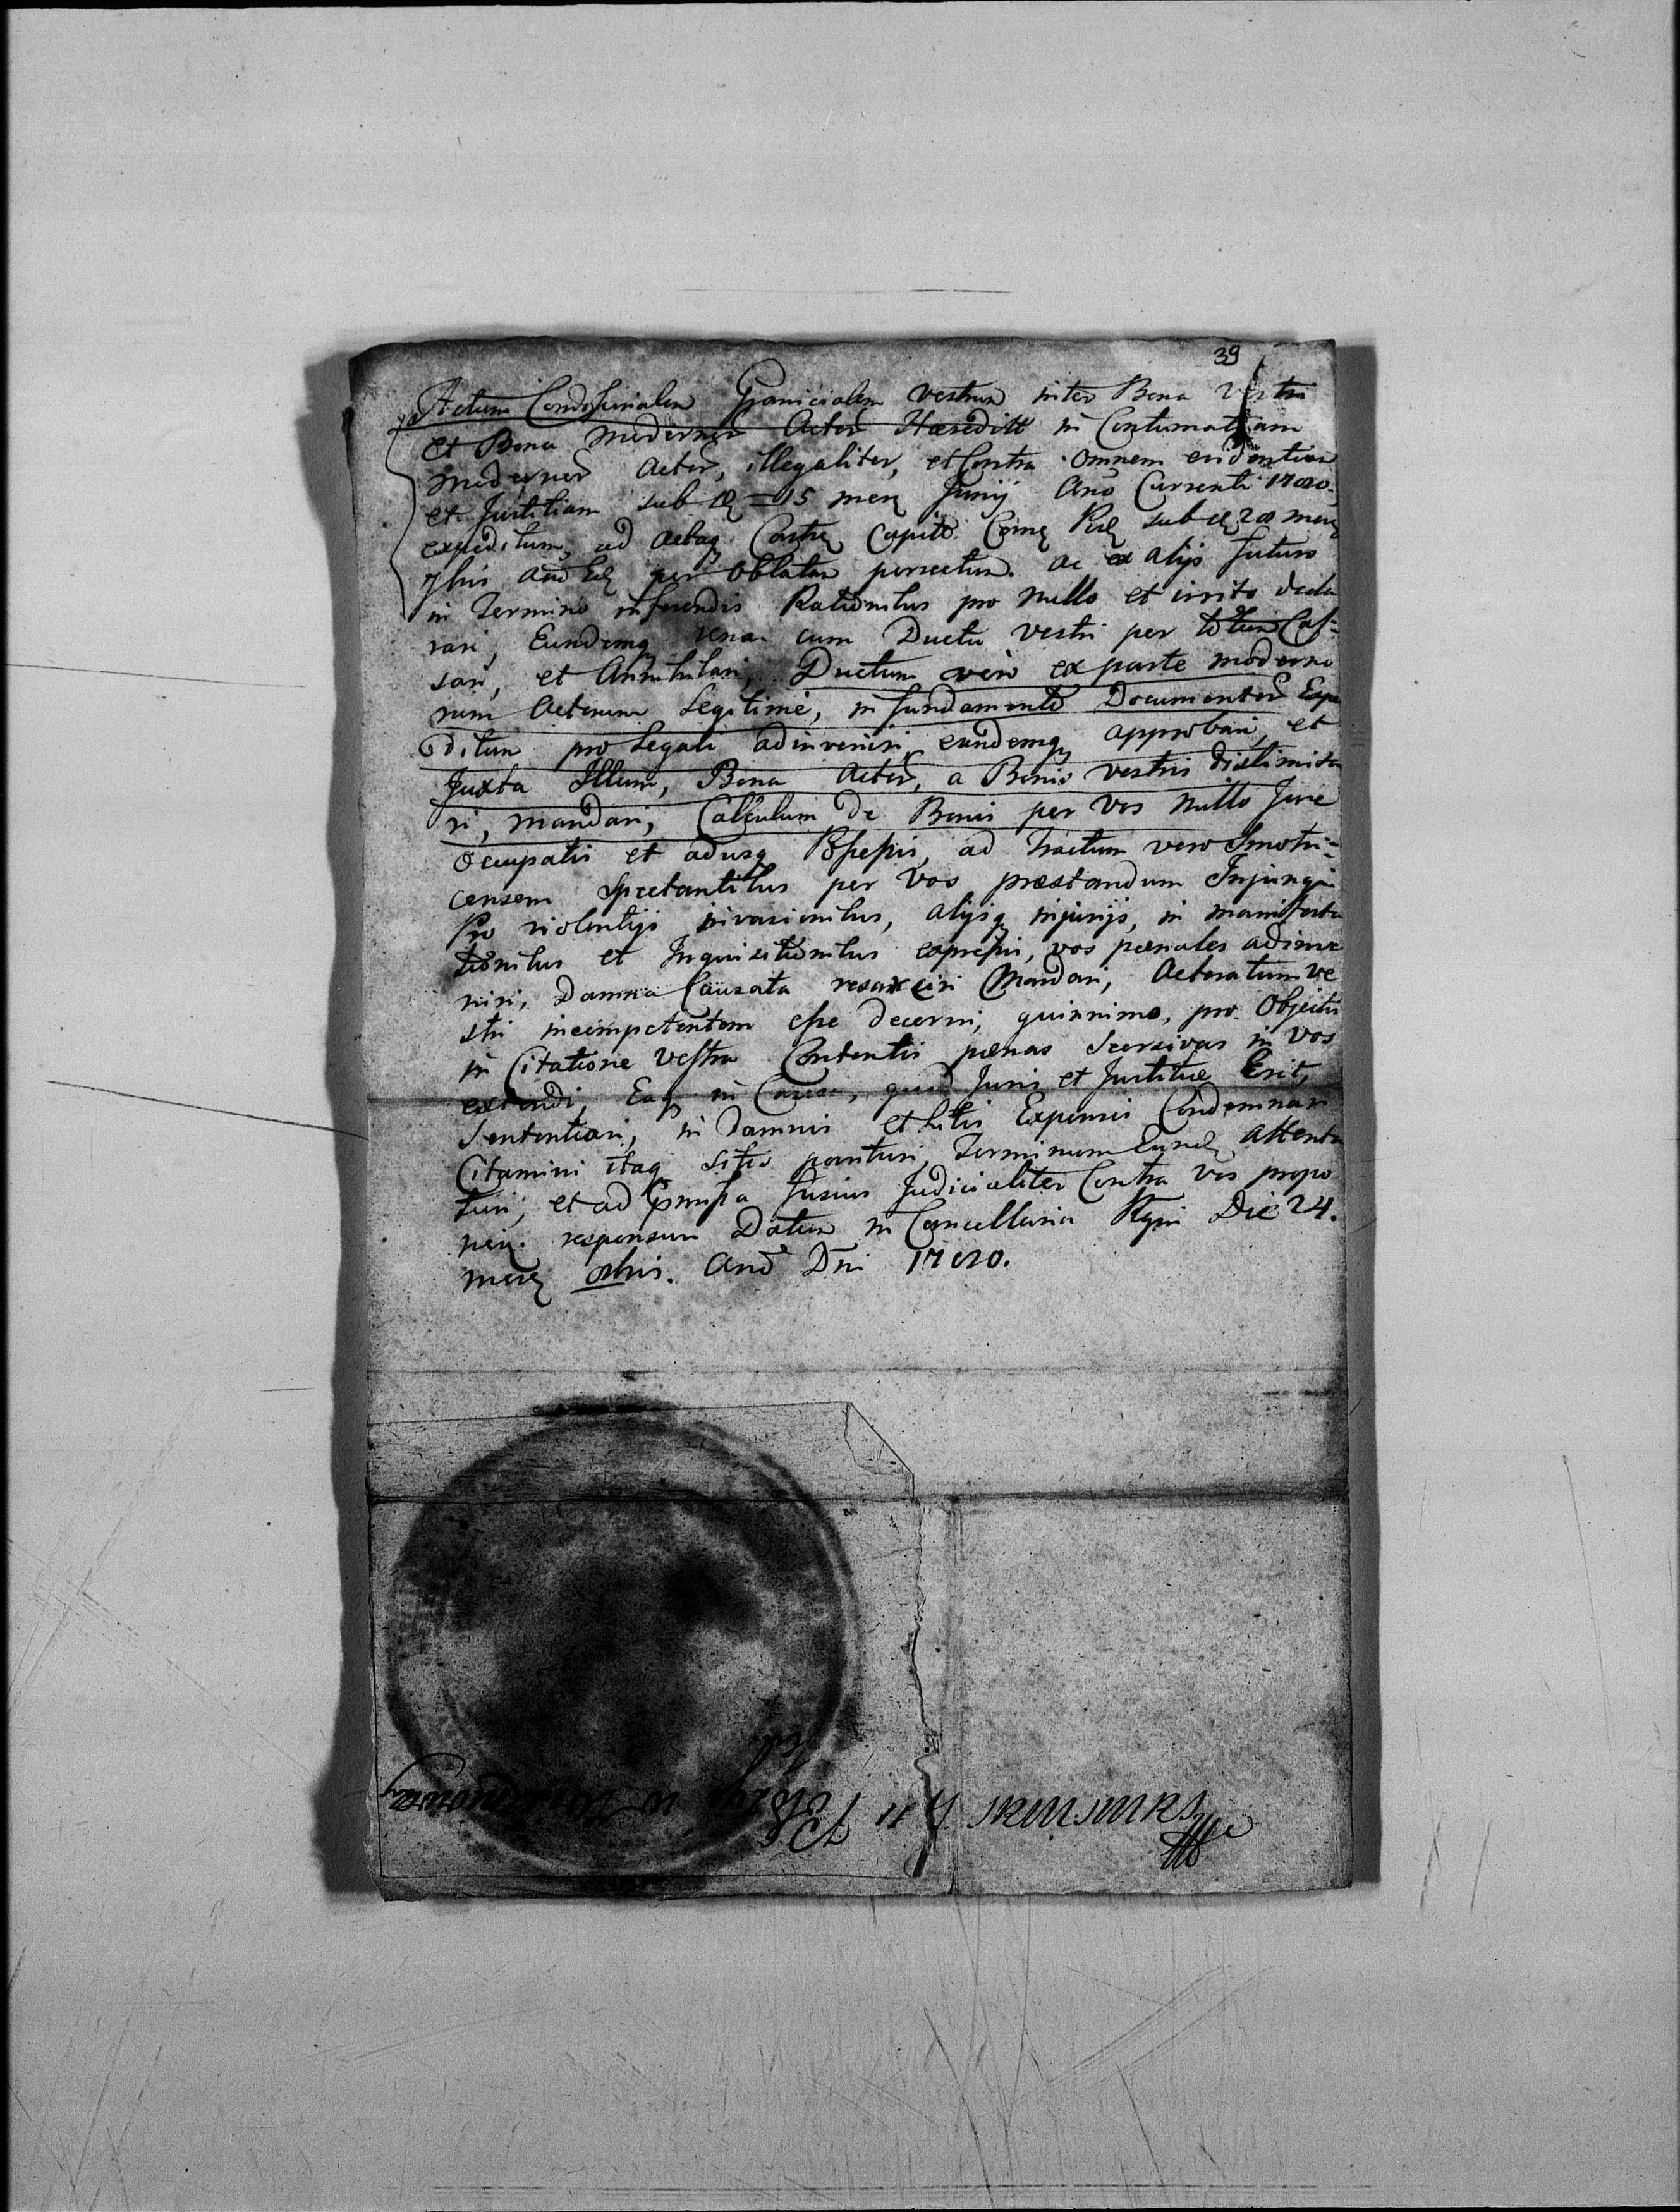 39
Actum Condescensialem Granicialem vestrum inter Bona vestra
et Bona modernor Actor Hæreditt in Contumatiam
modernor Actor, illegaliter, et Contra omnem evidentiam
et Justitiam sub 15 menq Junij Ano Currenti
expeditum, ad Actaq Castrq Capitt sub menq
7bris per Oblatam porrectum. ac ex alijs futuro
in Termino inferendis Rationibus pro nullo et irrito decla
rari, Eundemq una cum Ductu vestri per totum Cas=
sari, et Annihilari, Ductum vero ex parte moderno
rum Actorum Legitime, in fundamento Documentor Expe
ditum pro Legali adinveniri, eundemq approbari, et
Juxta Illum, Bona Actor, a Bonis vestris dislimita
ri, mandari, Calculum de Bonis per Vos nullo Jure
Occupatis et adusq Possessis, ad tractum vero Smotri=
censem Spectantibus per Vos præstandum Injungi
Pro violentijs invasionibus, alijsq injurijs, in manifesta
tionibus et Inquisitionibus expressis, vos pænales adinve
niri, Damna Causata resarciri Mandari, Actoratum ve
stri incompetentem esse decerni, quinnimo, pro Objectis
in Citatione Vestra Contentis pænas in Vos
extendi, Eaq in Causa, quod Juris et Justitiæ Erit,
Sententiari, in damnis et Litis Expensis Condemnari
Citamini itaq Litis parituri, Terminum attenta
turi, et ad præmissa fusius Judicialiter Contra Vos propo
responsuri Datum in Cancellaria Regni Die 24.
menq 8bris. Ano Dni